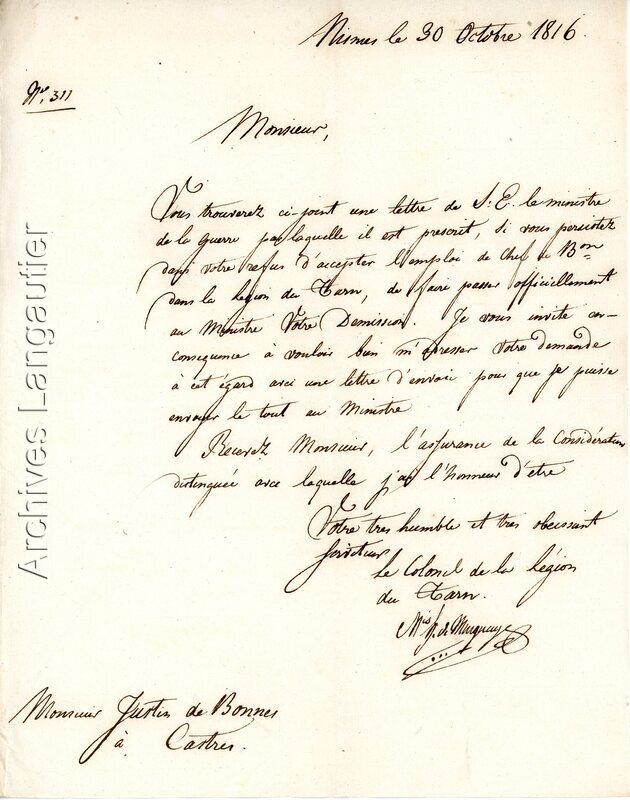 Nismes le 30 Octobre 1816.
Nº. 311
Monsieur,
Vous trouverez ci-joint une lettre de S. E. le ministre
de la guerre par laquelle il est prescrit, si vous persistez
dans votre refus d'accepter l'emploi de Chef de Bon
dans la légion du Tarn, de faire passer officiellement
au Ministre Votre Demission. Je vous invite en
consequence à vouloir bien m'adresser votre demande
à cet égard avec une lettre d'envoi pour que je puisse
envoyer le tout au Ministre
Recevez Monsieur, l'assurance de la Considération
distinguée avec laquelle j'ai l'honneur d'etre
Votre tres humble et tres obeissant
serviteur
Le Colonel de la Légion
du Tarn.
Mis de
Monsieur Justin de Bonnes
à Castres.
Archives Langautier